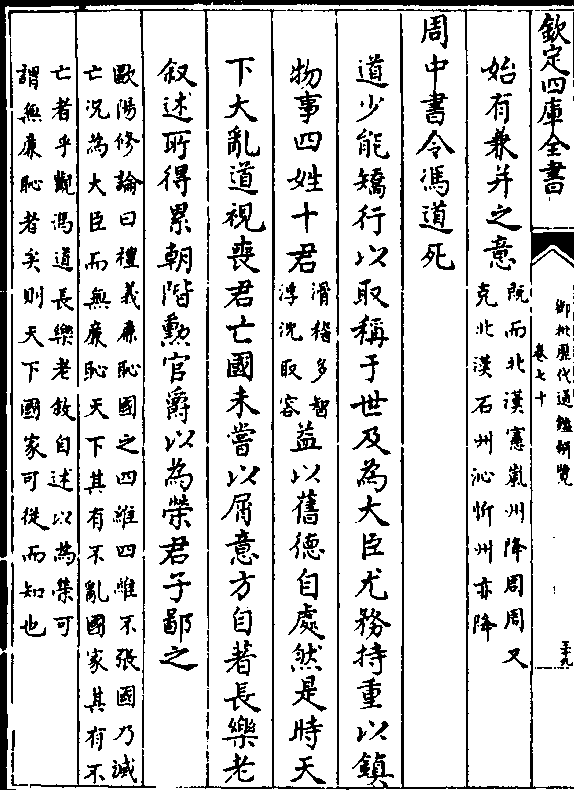 欽定四庫全書
御批歷代通鑑輯覽
卷七十
始有兼并之意
既而北漢憲嵐州降周周又
克北漢石州沁忻州亦降
周中書令馮道死
道少能矯行以取稱于世及為大臣尤務持重以鎮
物事四姓十君
滑稽多智
浮沈取容
益以舊德自處然是時天
下大亂道視喪君亡國未嘗以屑意方自著長樂老
叙述所得累朝階勲官爵以為榮君子鄙之
歐陽修論曰禮義廉恥國之四維四維不張國乃滅
亡況為大臣而無廉恥天下其有不亂國家其有不
亡者乎觀馮道長樂老敘自述以為榮可
謂無廉恥者矣則天下國家可從而知也